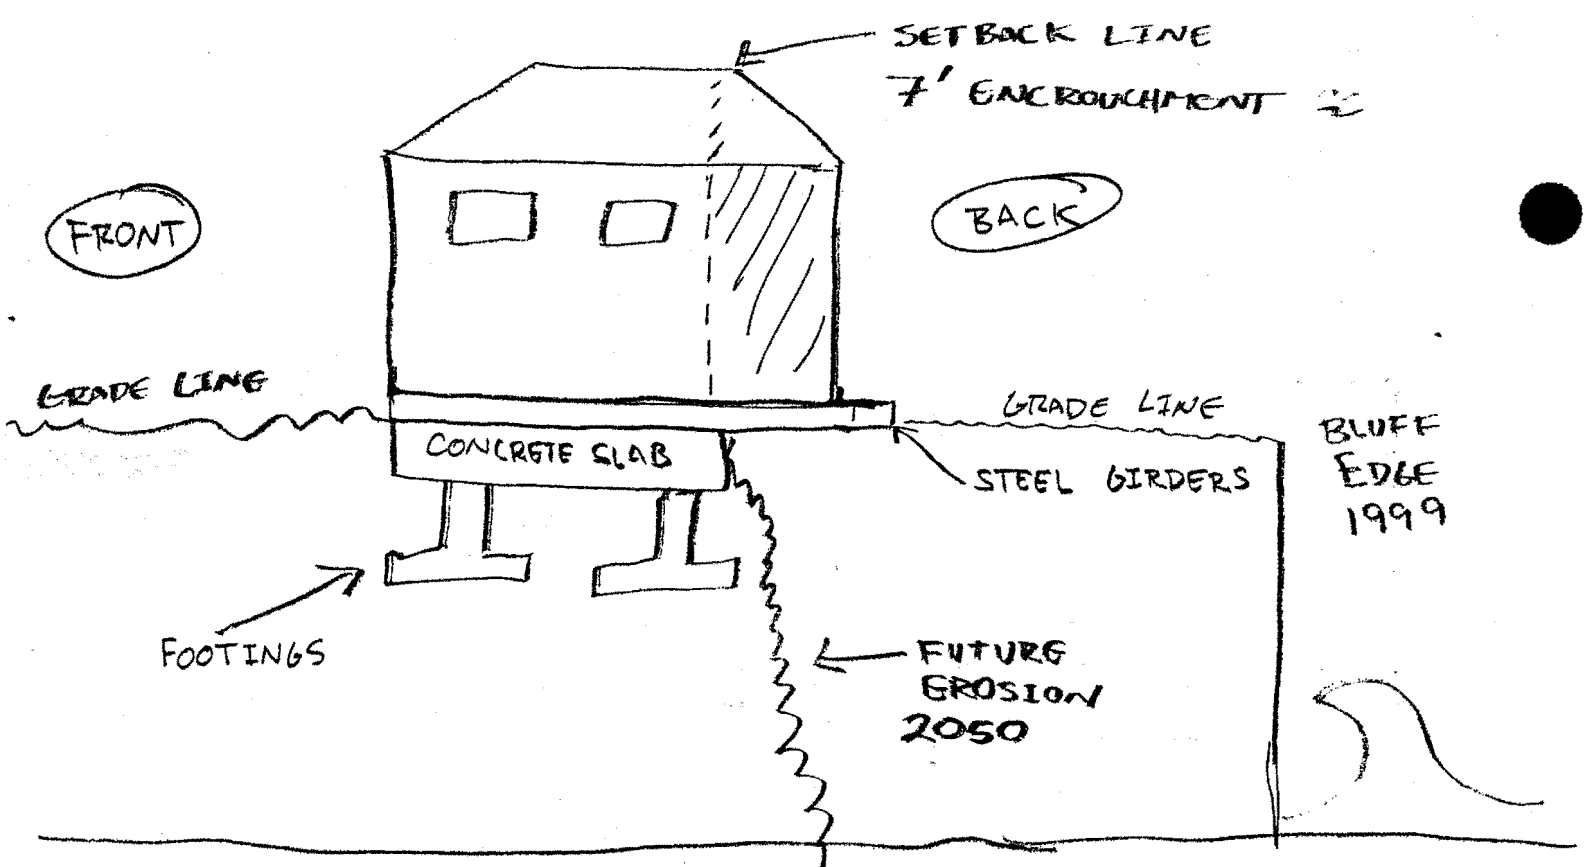 SETBACK LINE
7' ENCROUCHMENT
FRONT
BACK
GRADE LINE
GRADE LINE
CONCRETE SLAB
STEEL GIRDERS
BLUFF
EDGE
1999
FOOTINGS
FUTURE
EROSION
2050